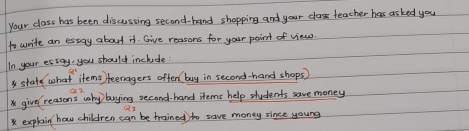 Your class has been discussing second-hand shopping and your class teacher has asked you
to write an essay about it. Give reasons for your point of view.
In your essay, you should include:
* state what items teenagers often buy in second-hand shops
Q1
* give reasons why buying second-hand items help students save money
Q2
* explain how children can be trained to save money since young
Q3